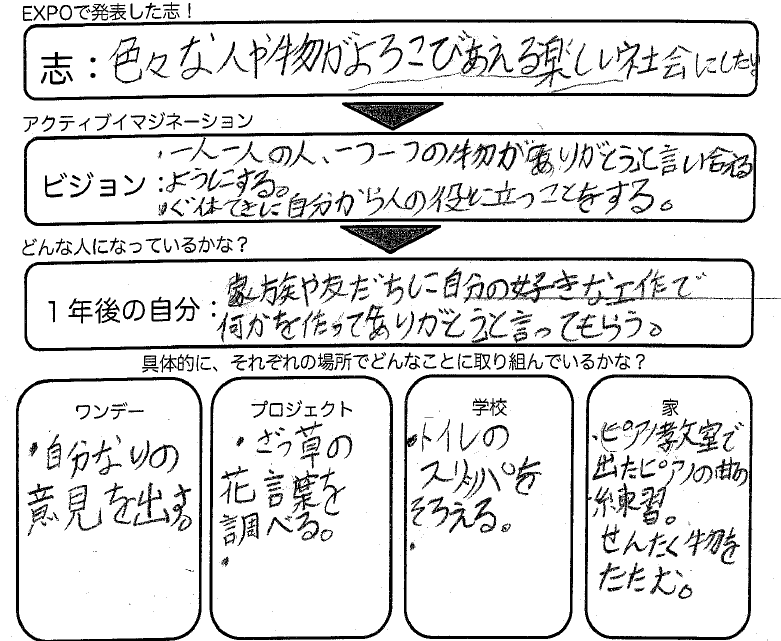 EXPOで発表した志！
志：色々な人や物がよろこびあえる楽しい社会にしたい
アクティブイマジネーション
ビジョン：
・一人一人の人、一つ一つの物がありがとうと言い合える
ようにする。
・ぐ体てきに自分から人の役に立つことをする。
どんな人になっているかな？
１年後の自分：
家族や友だちに自分の好きな工作で
何かを作ってありがとうと言ってもらう。
具体的に、それぞれの場所でどんなことに取り組んでいるかな？
ワンデー
・自分なりの
意見を出す。
プロジェクト
・ざっ草の
花言葉を
調べる。
・
学校
・トイレの
スリッパを
そろえる。
・
家
・ピアノ教室で
出たピアノの曲の
練習。
せんたく物を
たたむ。